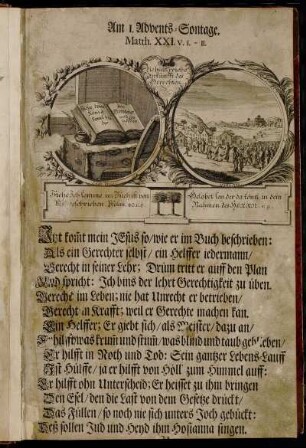 Am 1. Advents-Sontage.
Matth. XXI. v. 1. - 11.
Siehe Ich komme im Buch ist von
Mir geschrieben
Gelobet sey der da komt in dem
Nahmen des HErrn
Itzt kom̃t mein JEsus so/ wie er im Buch beschrieben:
Als ein Gerechter selbst/ ein Helffer iedermann/
Gerecht in seiner Lehr; Drüm tritt er auff den Plan
Und spricht: Ich bins der lehrt Gerechtigkeit zu üben.
Gerecht im Leben; nie hat Unrecht er betrieben/
Gerecht an Krafft; weil er Gerechte machen kan.
Ein Helffer; Er giebt sich/ als Meister/ dazu an/
Er hilfft was krum̃ und stum̃/ was blind und taub geblieben/
Er hilfft in Noth und Tod: Sein gantzer Lebens-Lauff
Ist Hülffe/ ja er hilfft von Höll zum Himmel auff:
Er hilfft ohn Unterscheid: Er heisset zu ihm bringen
Den Esel/ den die Last von dem Gesetze drückt/
Das Füllen/ so noch nie sich unters Joch gebückt:
Deß sollen Jüd und Heyd ihm Hosianna singen.